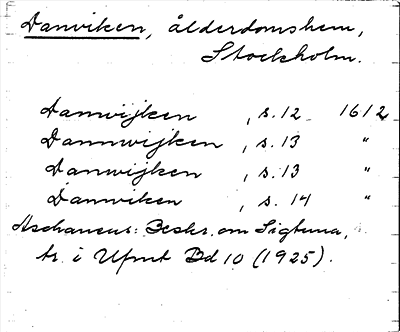 Danviken, ålderdomshem,
Stockholm.
Danwijken, s. 12 1612
Dannwijken, s. 13 "
Danwijken, s. 13 "
Danwiken, s. 14 "
Aschaneus: Beskr. om Sigtuna,
tr. i Upmt Bd 10 (1925).